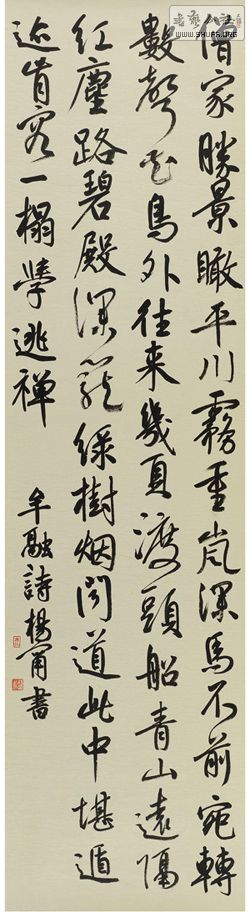 僧家勝景瞰平川霧重嵐深馬不前宛轉
數聲花鳥外往来幾頁渡頭船青山遠隔
紅塵路碧殿深籠綠樹烟聞道此中堪遁
迹肯容一榻學逃禪
牟融詩楊書